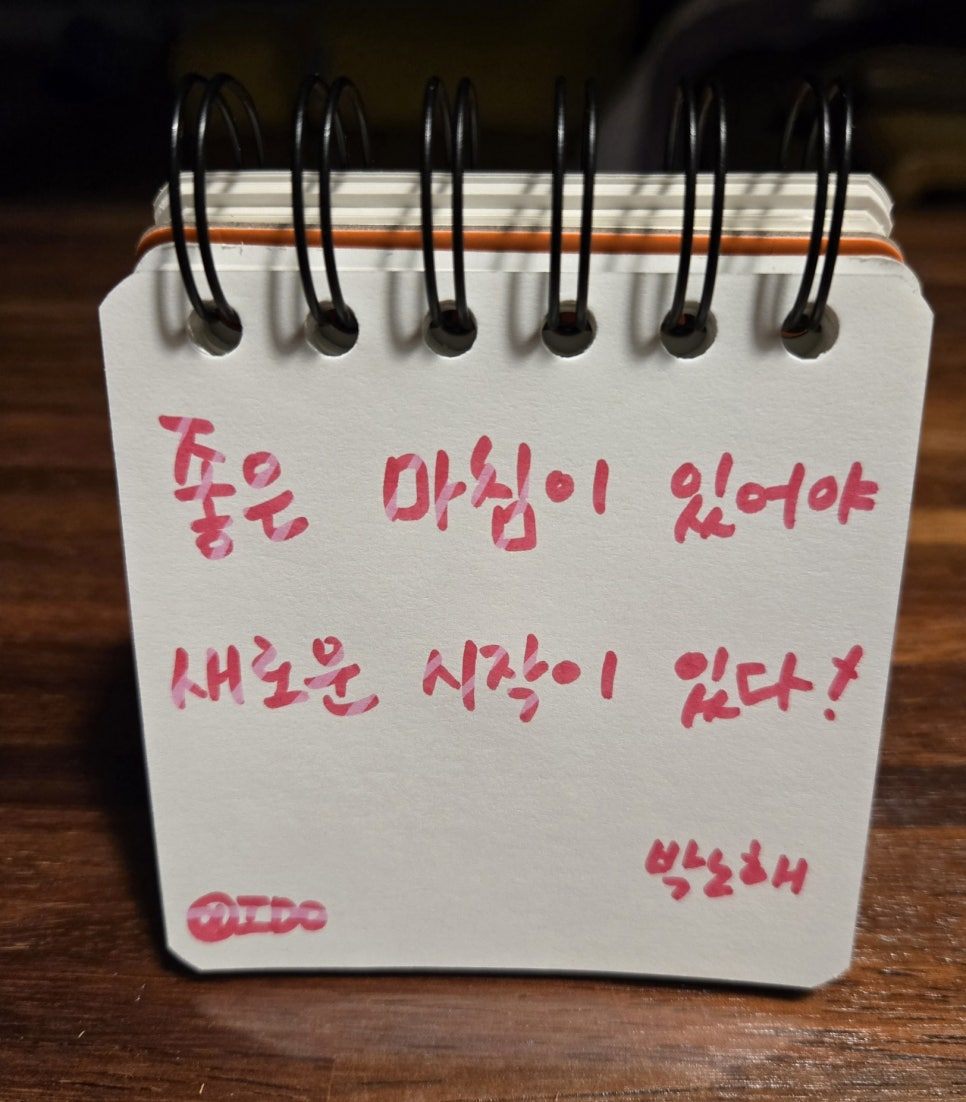 좋은 마침이 있어야
새로운 시작이 있다!
박노해
@IDO